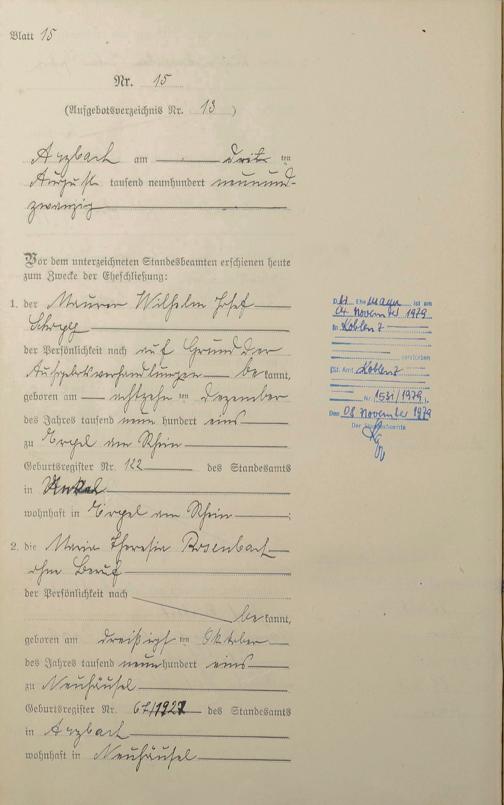 Blatt 15
Nr. 15
(Aufgebotsverzeichnis Nr. 13)
Arzbach am dritten
August tausend neunhundert neunund-
zwanzig
Vor dem unterzeichneten Standesbeamten erschienen heute
zum Zwecke der Eheschließung:
1. der Maurer Wilhelm Josef
der Persönlichkeit nach auf Grund der
Aufgebotsverhandlungen bekannt,
geboren am achtzehnten Dezember
des Jahres tausend neunhundert eins
zu Erpel am Rhein
Geburtsregister Nr. 122 des Standesamts
in Unkel
wohnhaft in Erpel am Rhein ;
2. die Maria Theresia Rosenbach
ohne Beruf
der Persönlichkeit nach
bekannt,
geboren am dreißigsten Oktober
des Jahres tausend neunhundert eins
zu Neuhäusel
Geburtsregister Nr. des Standesamts
in Arzbach
wohnhaft in Neuhäusel
Ehemann ist am
04. November 1979
in Koblenz
verstorben
(St. Amt Koblenz
Nr. 1531/1979)
Den 08. November 1979
Der Standesbeamte